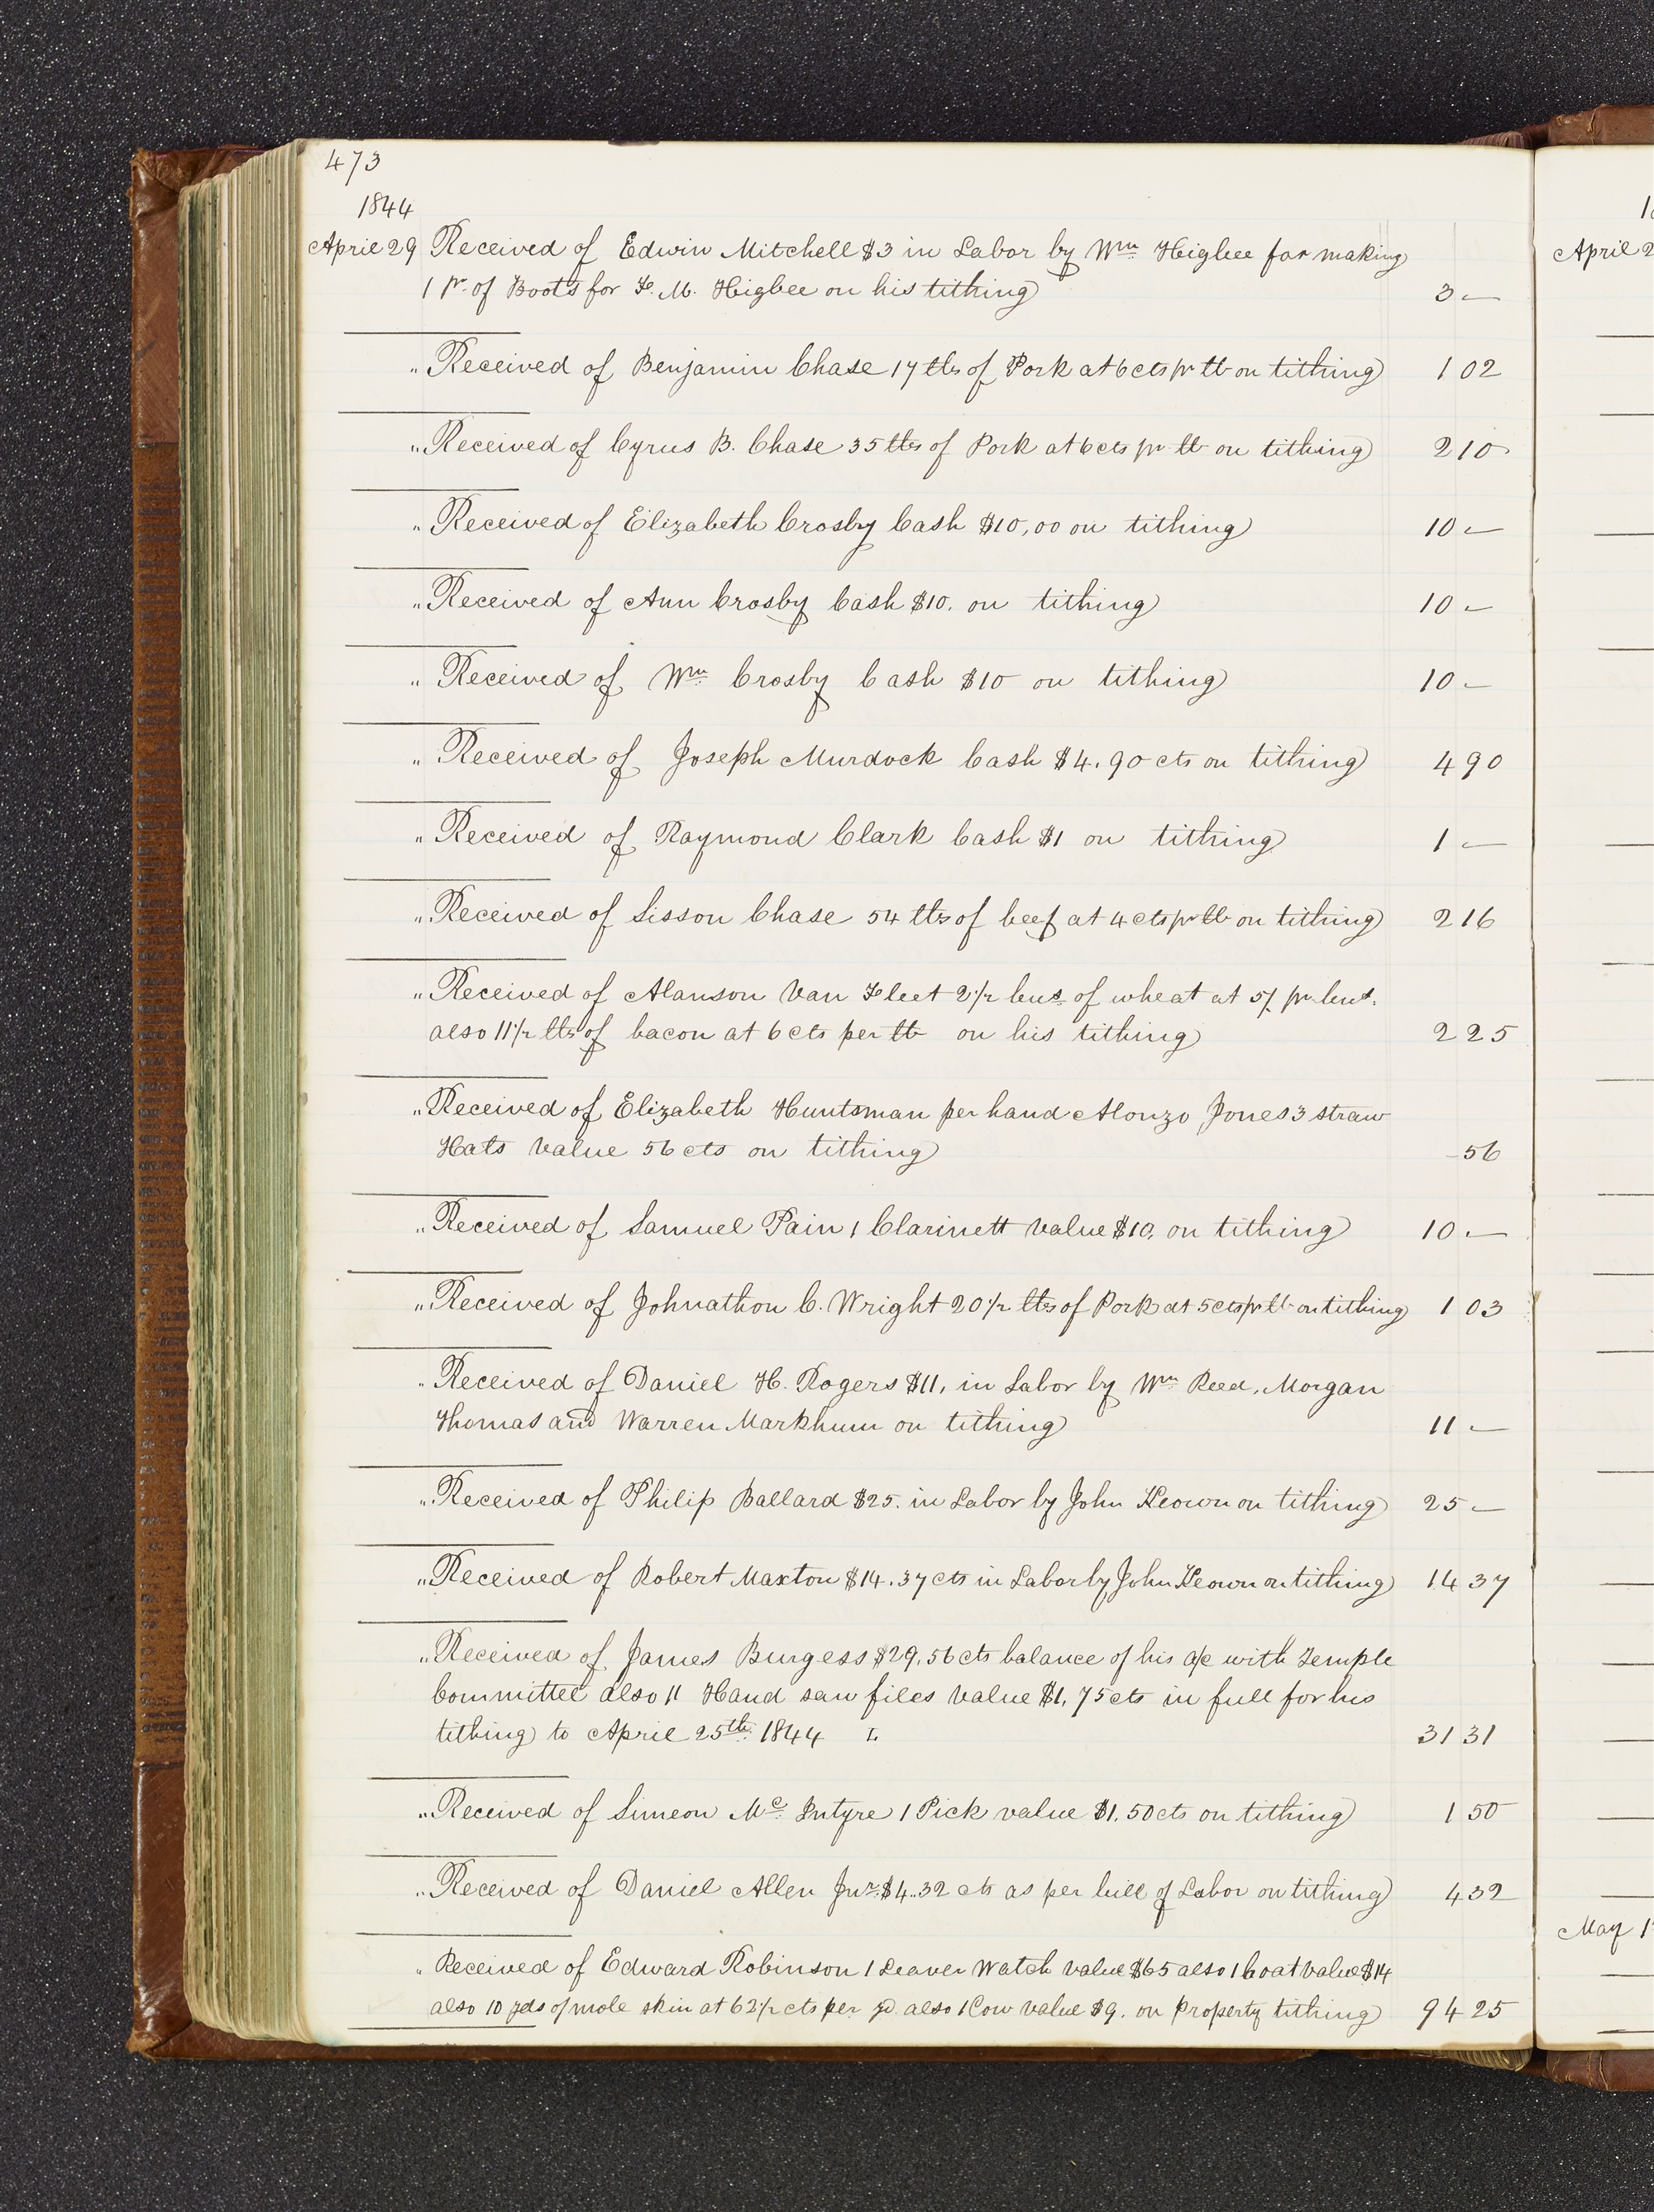 473
1844
April 29 Received of Edwin Mitchell $3 in Labor by Wm Higbee for making
1 Pr. of Boots for F. M. Higbee on his tithing 3 —
" Received of Benjamin Chase 17 lbs of Pork at 6 cts pr lb on tithing 1 02
" Received of Cyrus B. Chase 35 lbs of Pork at 6 cts pr lb on tithing 2 10
" Received of Elizabeth Crosby Cash $10,00 on tithing 10 —
" Received of Ann Crosby Cash $10. on tithing 10 —
" Received of Wm Crosby Cash $10 on tithing 10 —
" Received of Joseph Murdock Cash $4.90 cts on tithing 4 90
" Received of Raymond Clark Cash $1 on tithing 1 —
" Received of Sisson Chase 54 lbs of beef at 4 cts pr lb on tithing 2 16
" Received of Alanson Van Fleet 2 1/2 bus. of wheat at 5/. pr bus.
also 11 1/2 lbs of bacon at 6 cts per lb on his tithing 2 25
" Received of Elizabeth Huntsman per hand Alonzo Jones 3 straw
Hats value 56 cts on tithing 56
" Received of Samuel Pain 1 Clarinett value $10, on tithing 10 —
" Received of Johnathon C. Wright 20 1/2 lbs of Pork at 5 cts pr lb on tithing 1 03
" Received of Daniel H. Rogers $11, in Labor by Wm Reed, Morgan
Thomas and Warren Markhum on tithing 11 —
" Received of Philip Ballard $25. in Labor by John Keown on tithing 25 —
" Received of Robert Maxton $14.37 cts in Labor by John Keown on tithing 14 37
" Received of James Burgess $29,56 cts balance of his a/c with Temple
Committee also 11 Hand saw files value $1,75 cts in full for his
tithing to April 25th 1844 31 31
" Received of Simeon Mc Intyre 1 Pick value $1,50 cts on tithing 1 50
" Received of Daniel Allen Jnr. $4..32 cts as per bill of Labor on tithing 4 32
" Received of Edward Robinson 1 Leaver Watch value $65 also 1 boat value $14
also 10 yds of mole skin at 62 1/2 cts per yd. also 1 Cow value $9. on Property tithing 94 25
April 2
May 1